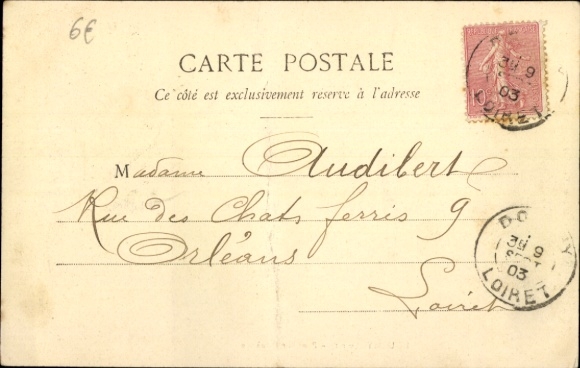 6€
CARTE POSTALE
Ce côté est exclusivement reservé à l'adresse
Madame Audibert
Rue des Chats ferrés 9
Orléans
Loiret
30 9
03
LOIRET
30 9
SEPT
03
LOIRET